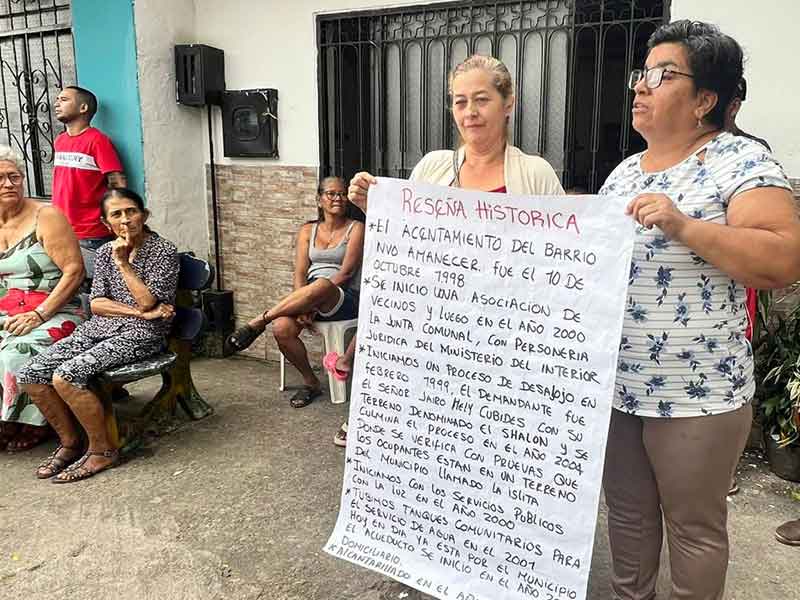 RESEÑA HISTORICA
*El ACENTAMIENTO DEL BARRIO
NVO AMANECER. FUE EL 10 DE
OCTUBRE 1998
*SE INICIO UNA ASOCIACION DE
VECINOS y LUEGO EN EL AÑO 2000
LA JUNTA COMUNAL, CON PERSONERIA
JURIDICA DEL MINISTERIO DEL INTERIOR
*INICIAMOS UN PROCESO DE DESALOJO EN
FEBRERO 1999, EL DEMANDANTE FUE
EL SEÑOR JAIRO HELY CUBIDES CON SU
TERRENO DENOMINADO EL SHALON y SE
CULMINA EL PROCESO EN EL AÑO 2004
DONDE SE VERIFICA CON PRUEVAS QUE
LOS OCUPANTES ESTAN EN UN TERRENO
DEL MUNICIPIO LLAMADO LA ISLITA
*INICIAMOS CON LOS SERVICIOS PUBLICOS
CON LA LUZ EN EL AÑO 2000
*TUBIMOS TANQUES COMUNITARIOS PARA
EL SERVICIO DE AGUA EN EL 2001
HOY EN DIA YA ESTA POR EL MUNICIPIO
EL ACUEDUCTO SE INICIO EN EL AÑO
DOMICILIARIO.
*ALCANTARILLADO EN EL